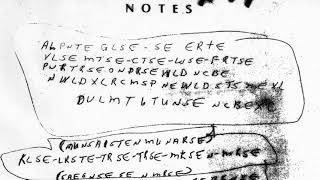 NOTES
ALPNTE GLSE-SE ERTE
VLSE MTSE-CTSE-WSE-FRTSE
PNRTRSEONDRSEWLD NCBE
NWLDXLRCMSP NEWLDSTS MEXL
DULMT 6 TUNSE NCBEXC
(MUNSAISTENMUNARSE)
KLSE-LRSTE-TRSE-TRSE-MKSEN-MRSE
(SAEGNSESE N MRSE)